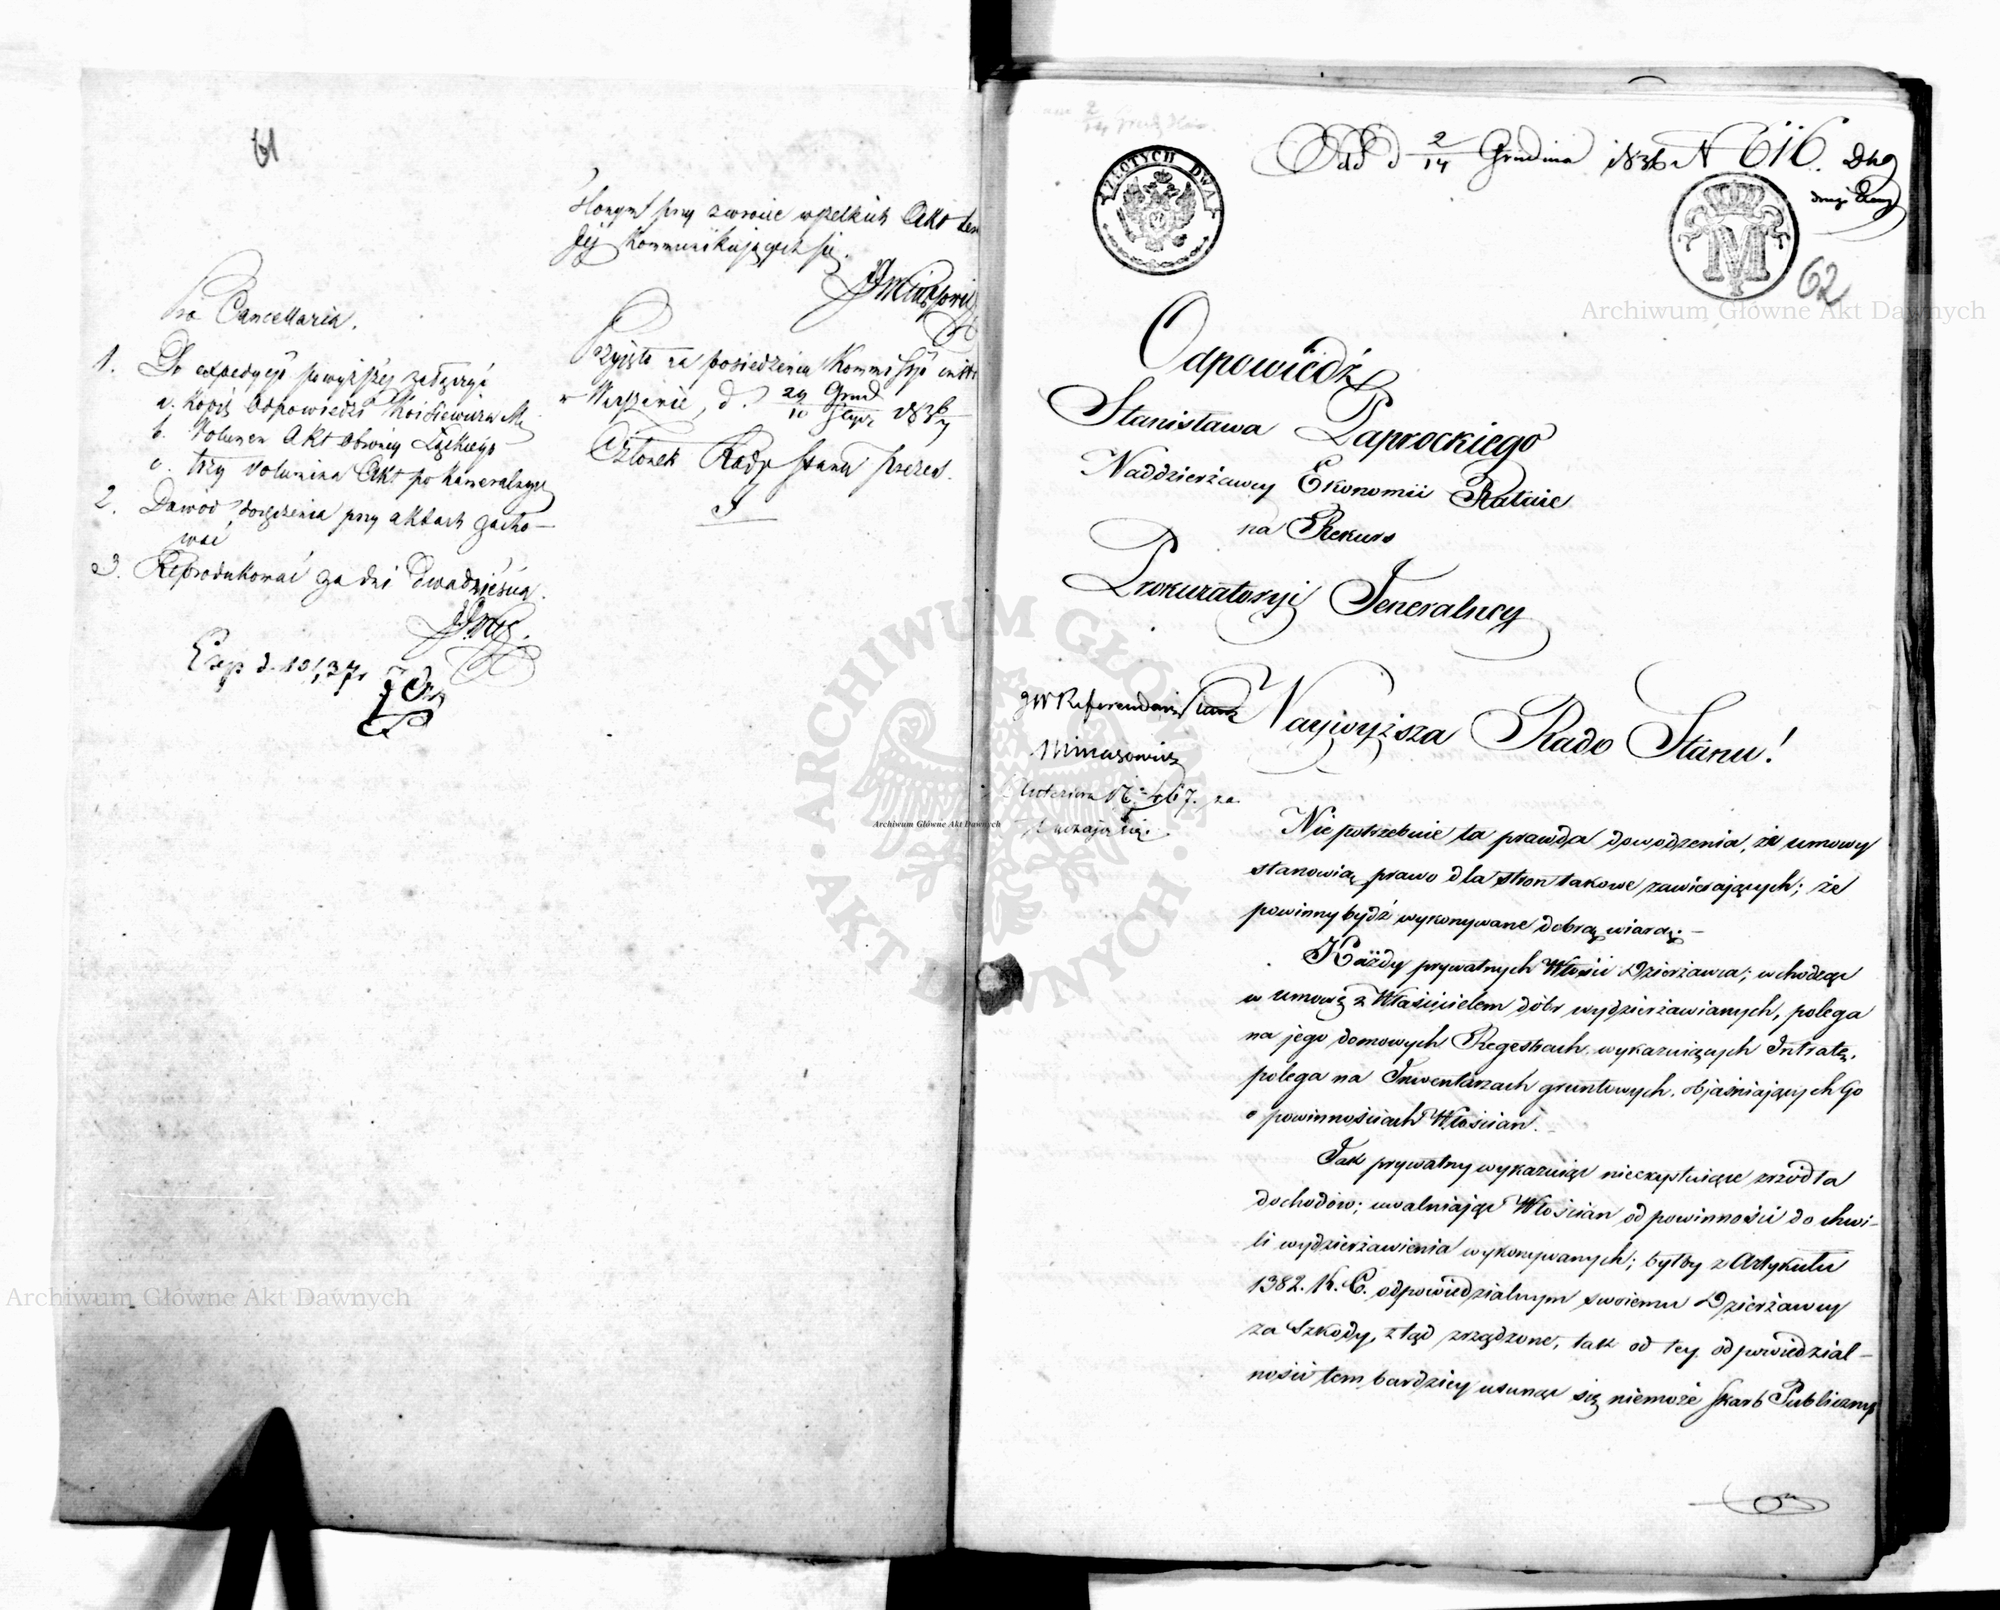 61
przy zwrocie wszelkich Akt
jej kommunikujących się.
Pro Cancellaria.
1. Do expedycyi powyższej załączyć
a. Kopię Odpowiedzi
b. Volumen Akt obrońcy Łąckiego
c. trzy volumina Akt po Kameralnych
2. Dowód doręczenia przy aktach zacho-
wać
3. Reprodukować za dni dwadzieścia.
Exp d. 10/1 37 r
Przyjęto na posiedzeniu Kommissyi
w Warszawie, d. 29 Grud / 10 Stycz 1836/7
Członek Rady Stanu Prezes.
ZŁOTYCH DWA
Odd d 2/14 Grudnia 1836 r N 616. Dług
M
62
Odpowiedź
Stanisława Paprockiego
Naddzierżawcy Ekonomii Ratnie
na Rekurs
Prokuratoryi Jeneralney
JW Referendarz Stanu
Minasowicz
N. 467. za-
łączając
Naywyższa Rado Stanu!
Nie potrzebuie ta prawda dowodzenia, że umowy
stanowią prawo dla stron takowe zawierających; że
powinny bydź wykonywane dobrą wiarą. –
Każdy prywatnych Włości Dzierżawca; wchodząc
w umowę z Właścicielem dóbr wydzierżawianych, polega
na jego domowych Regestrach, wykazuiących Intratę,
polega na Inwentarzach gruntowych, objaśniających Go
o powinnościach Włościan. –
Jak prywatny wykazuiąc nieexystuiące zrzódła
dochodów; uwalniając Włościan od powinności do chwi-
li wydzierżawienia wykonywanych; byłby z Artykułu
1382. K. C. odpowiedzialnym swoiemu Dzierżawcy
za Szkody, ztąd zrządzone, tak od tey odpowiedzial-
ności tem bardziey usunąć się niemoże Skarb Publiczny
Archiwum Główne Akt Dawnych
Archiwum Główne Akt Dawnych
Archiwum Główne Akt Dawnych
ARCHIWUM GŁÓWNE · AKT DAWNYCH ·